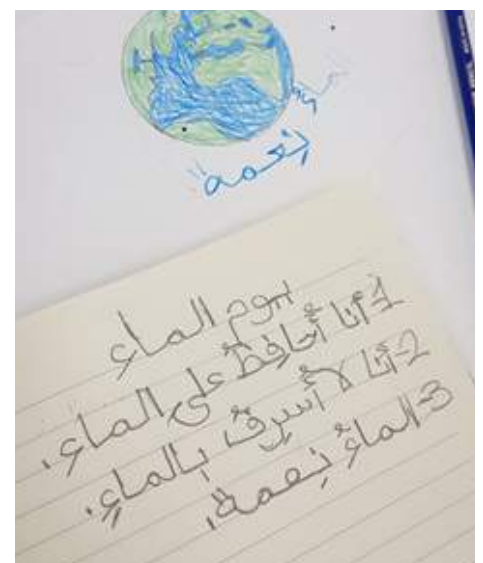 الماء
نِعمة"
يوم الماءِ
1-أنا أُحافِظُ على الماءِ.
2-أنا لا أُسرِفُ بالماءِ.
3-الماءُ نِعمة.